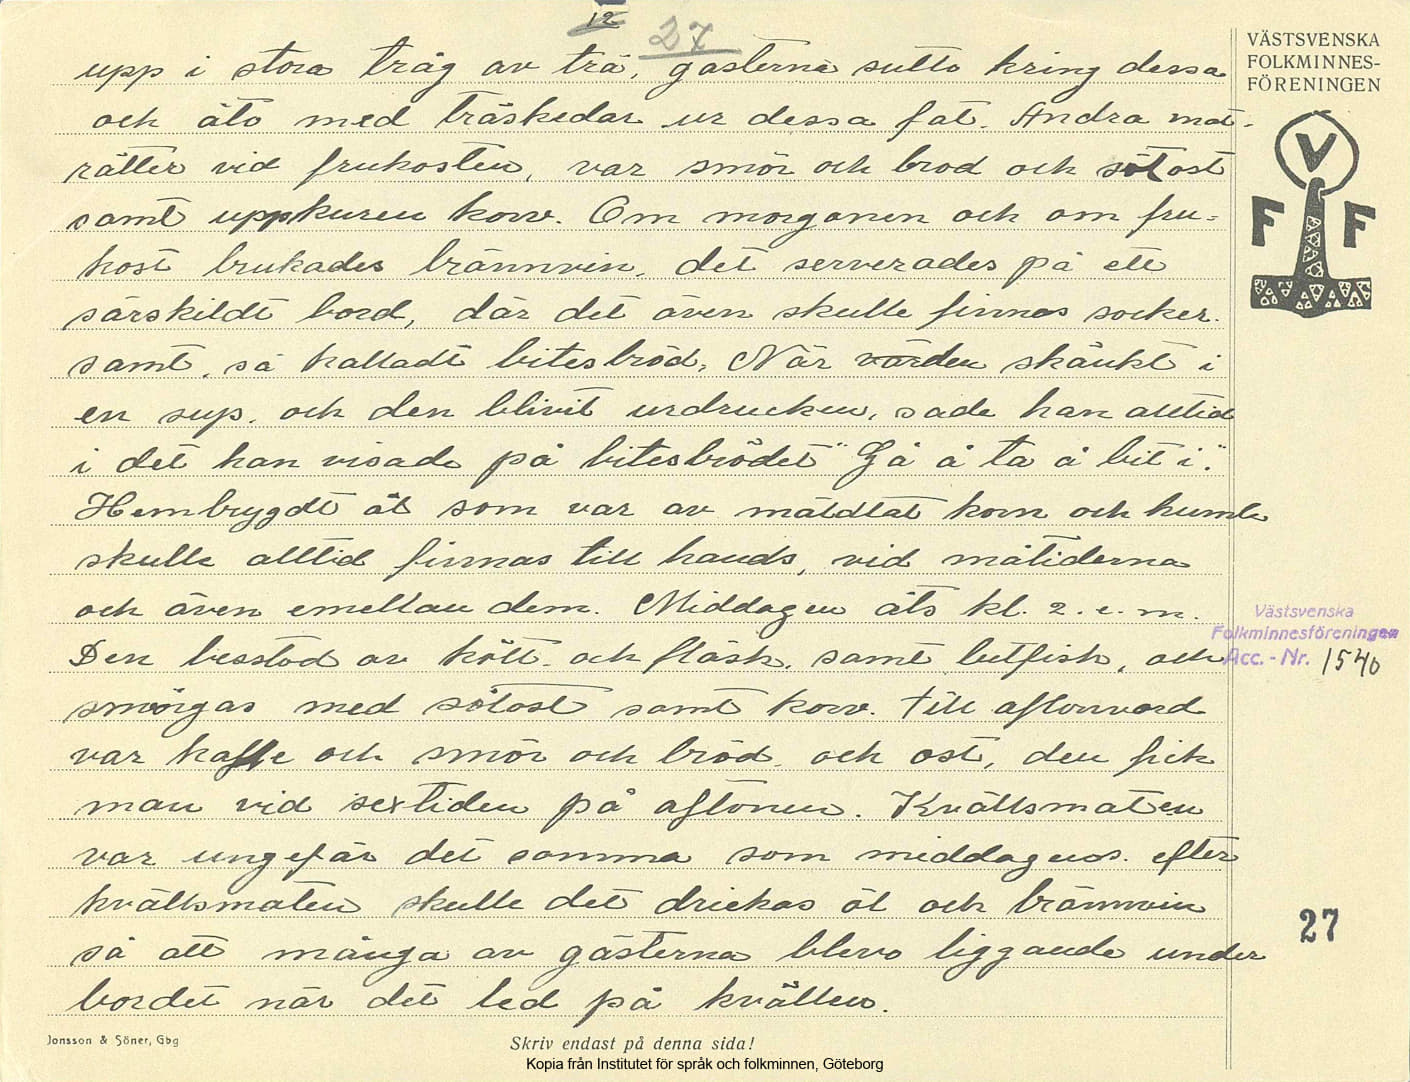 12
27
upp i stora tråg av trä, gästerna sutto kring dessa
och äto med träskedar ur dessa fat. Andra mat-
rätter vid frukosten, var smör och bröd och sötost
samt uppskuren korv. Om morgonen och om fru=
kost brukades brännvin, det serverades på ett
särskildt bord, där det även skulle finnas socker.
samt, så kalladt bitesbröd, När värden skänkt i
en sup, och den blivit urdrucken, sade han alltid
i det han visade på bitesbrödet "Gå å ta å bit i".
Hembrygdt öl som var av mältdtat korn och humle
skulle alltid finnas till hands, vid måltiderna
och även emellan dem. Middagen äts kl. 2. e. m.
Den besstod av kött. och fläsk. samt lutfisk, och
smörgås med sötost samt korv. till aftonvard
var kaffe och smör och bröd, och ost, den fick
man vid sextiden på aftonen. Kvällsmaten
var ungefär det samma som middagens. efter
kvällsmaten skulle det drickas öl och brännvin
så att många av gästerna blevo liggande under
bordet när det led på kvällen.
VÄSTSVENSKA
FOLKMINNES-
FÖRENINGEN
V
F F
Västsvenska
Folkminnesföreningen
Acc. - Nr. 1540
27
Jonsson & Söner, Gbg
Skriv endast på denna sida!
Kopia från Institutet för språk och folkminnen, Göteborg